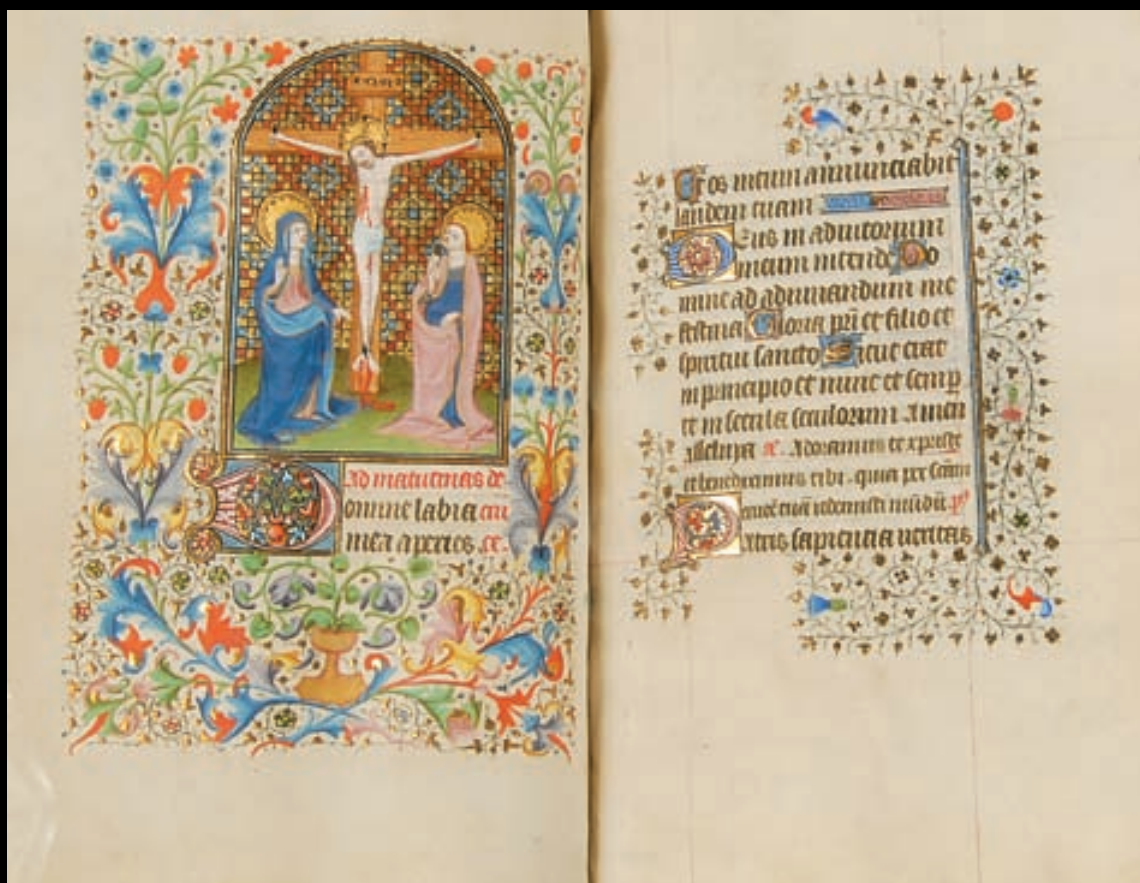 Ad matutinas de
Domine labia cru
mea aperies. et.
Et os meum annunciabit
laudem tuam
Deus in adiutorium
meum intende Do
mine ad adiuvandum me
festina Gloria pri et filio et
spiritui sancto Sicut erat
in principio et nunc et semp
et in secula seculorum Amen
alleluya Adoramus te xpriste
et benedicamus tibi. quia per scam
crucem tuam redemisti mundu. ps
Patris sapientia veritas